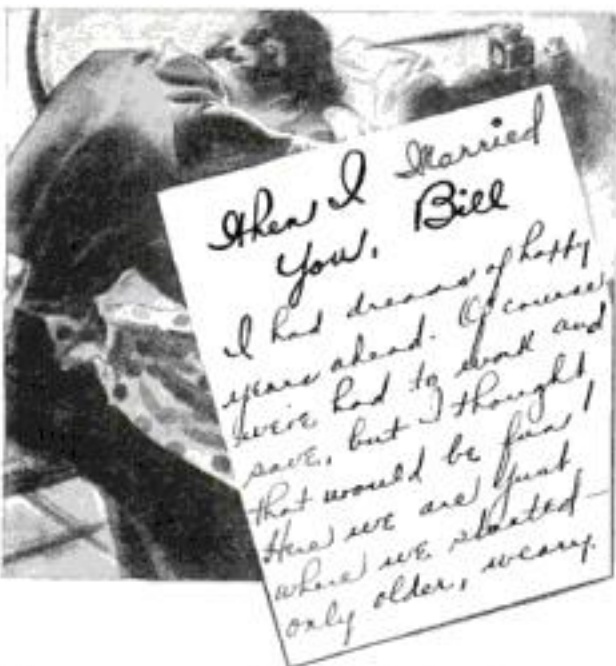 When I Married
You, Bill
I had dreams of happy
years ahead. Of course,
we've had to work and
save, but I thought
that would be fun!
Here we are just
where we started—
only older, weary.